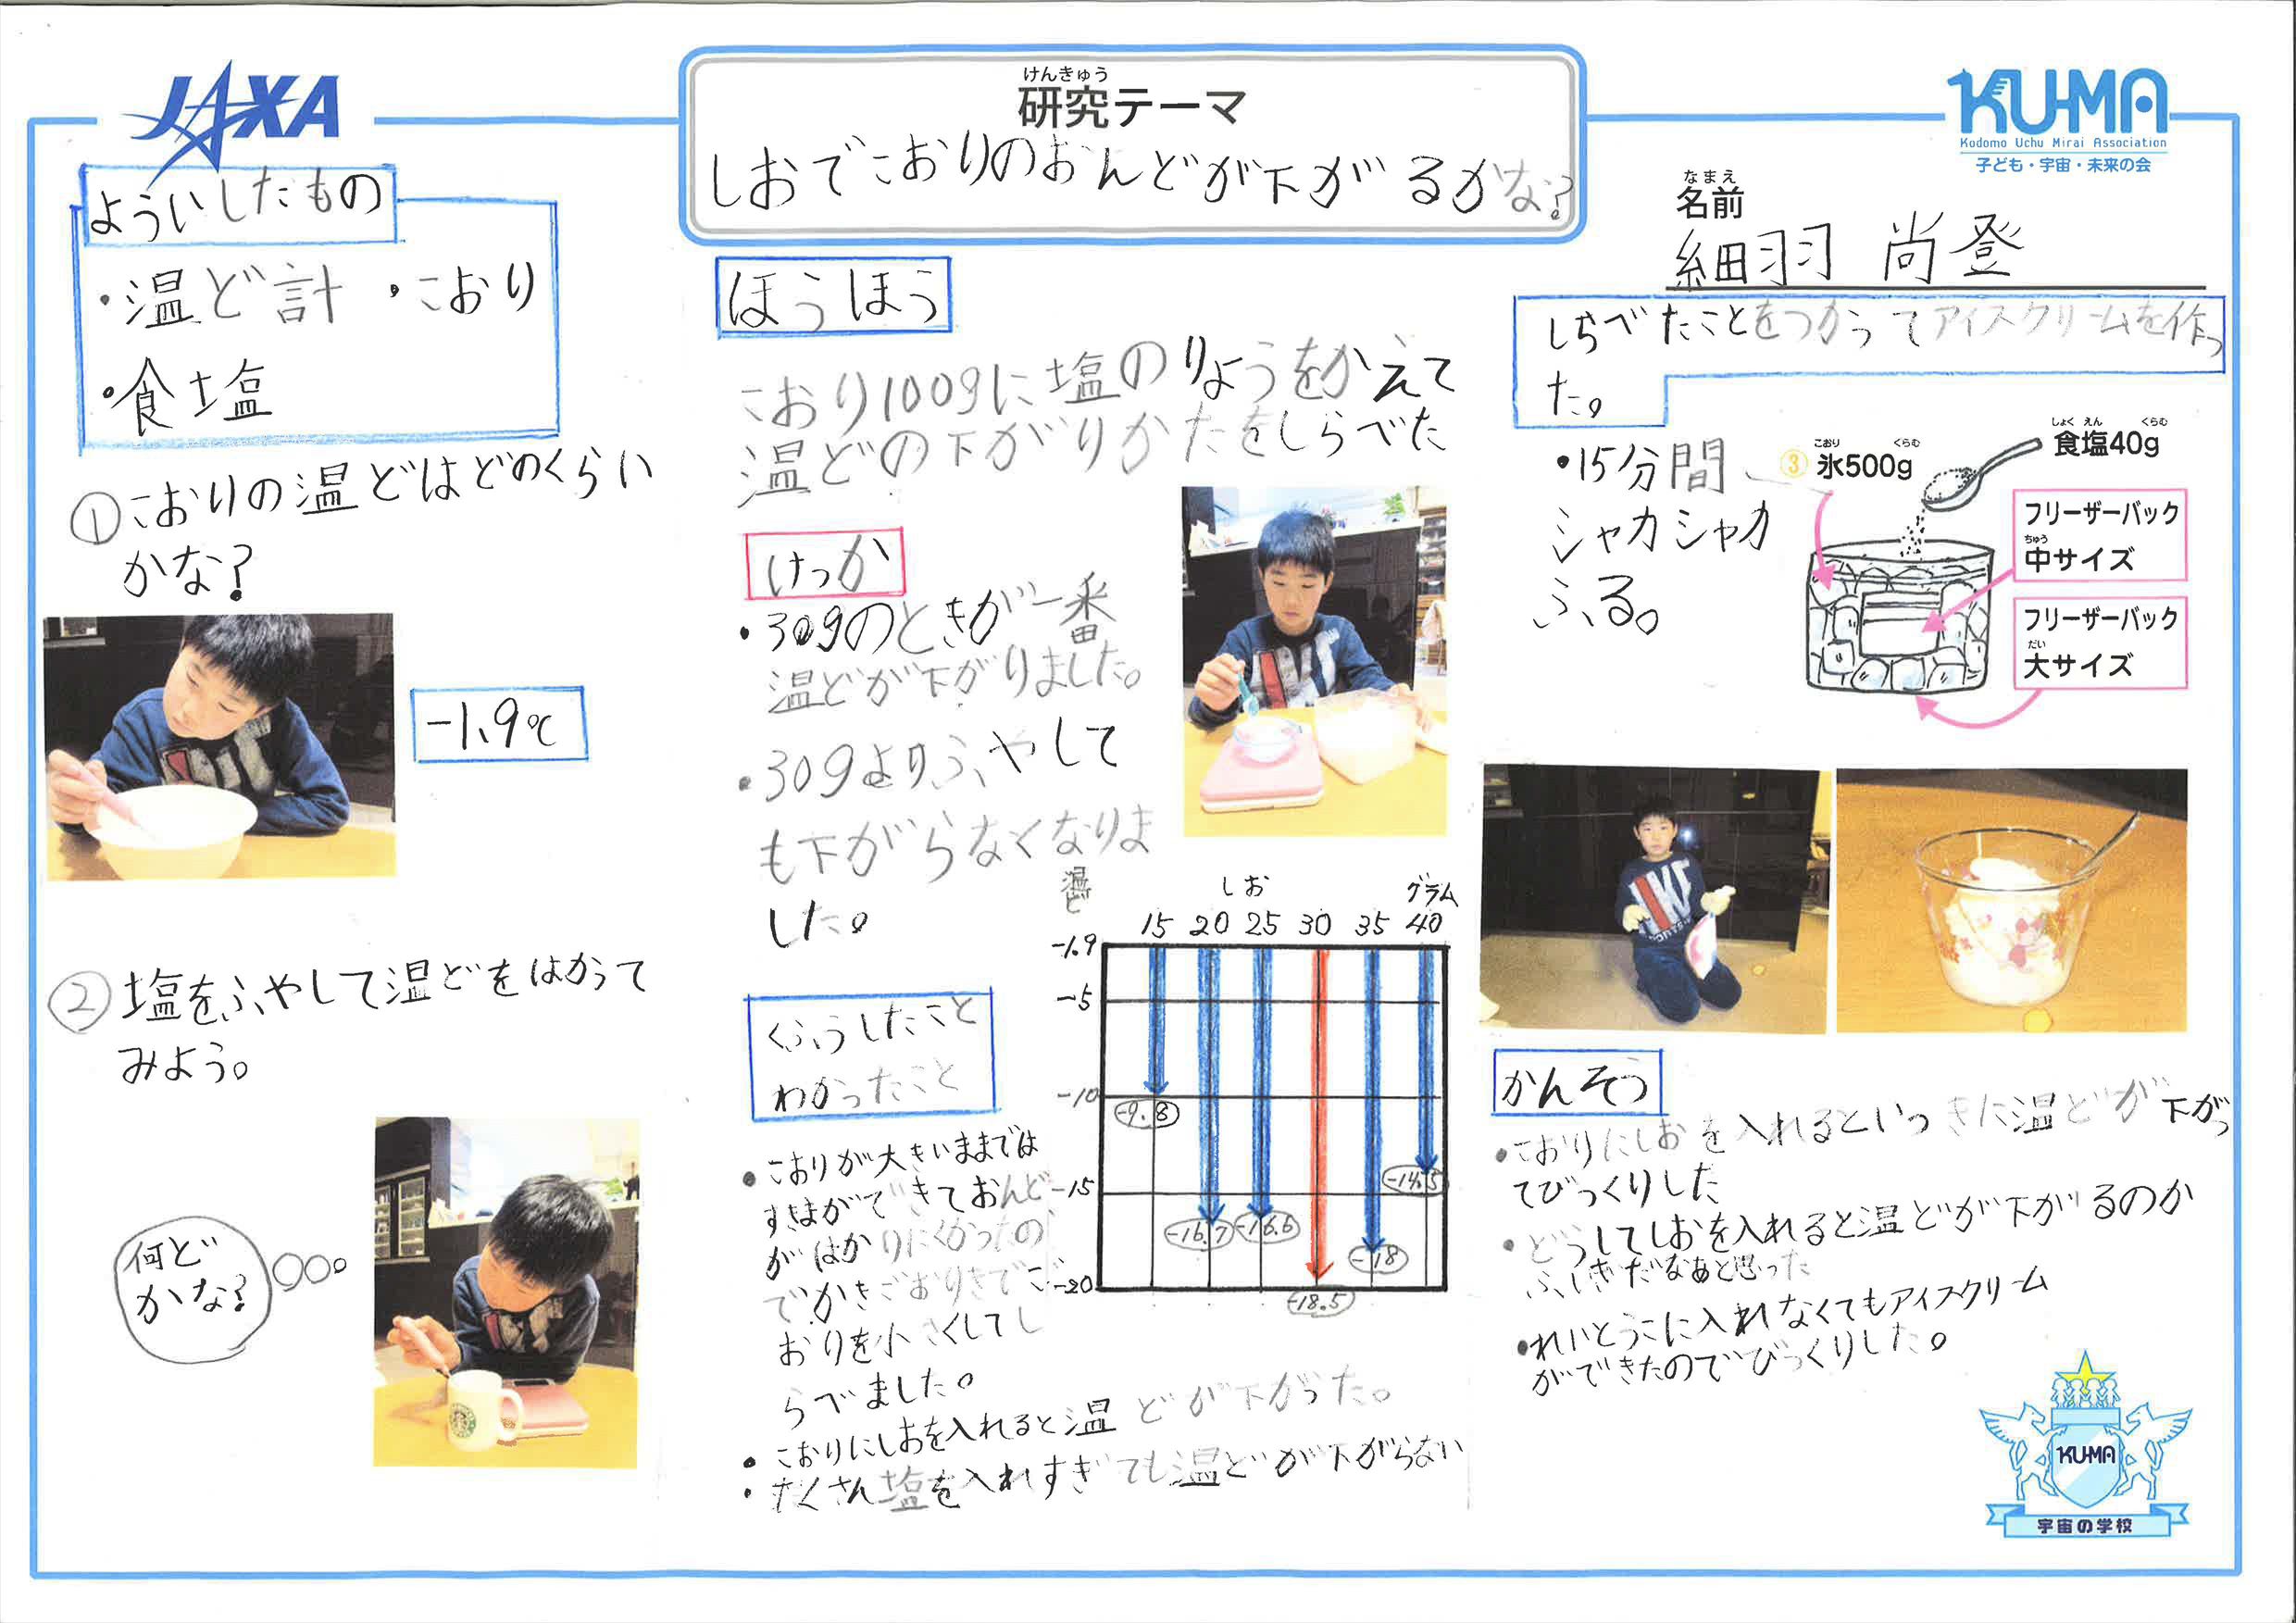 JAXA
けんきゅう
研究テーマ
しおでこおりのおんどが下がるかな?
KU-MA
Kodomo Uchu Mirai Association
子ども・宇宙・未来の会
なまえ
名前
細羽 尚登
よういしたもの
・温ど計 ・こおり
・食塩
①こおりの温どはどのくらい
かな?
-1.9℃
②塩をふやして温どをはかって
みよう。
何ど
かな?
ほうほう
こおり100gに塩のりょうをかえて
温どの下がりかたをしらべた
けっか
・30gのときが一番
温どが下がりました。
・30gよりふやして
も下がらなくなりま
した。
温ど
しお
グラム
15 20 25 30 35 40
-1.9
-5
-10
-15
-20
-9.8
-16.7
-16.6
-18.5
-18
-14.5
くふうしたこと
わかったこと
・こおりが大きいままでは
すきまができておんど
がはかりにくかったの
でかきごおりきでこ
おりを小さくしてし
らべました。
・こおりにしおを入れると温どが下がった。
・たくさん塩を入れすぎても温どが下がらない
しらべたことをつかってアイスクリームを作っ
た。
・15分間
シャカシャカ
ふる。
こおり くらむ
③ 氷500g
しょく えん くらむ
食塩40g
フリーザーバック
ちゅう
中サイズ
フリーザーバック
だい
大サイズ
かんそう
・こおりにしおを入れるといっきに温どが下がっ
てびっくりした
・どうしてしおを入れると温どが下がるのか
ふしぎだなあと思った
・れいとうこに入れなくてもアイスクリーム
ができたのでびっくりした。
KU-MA
宇宙の学校